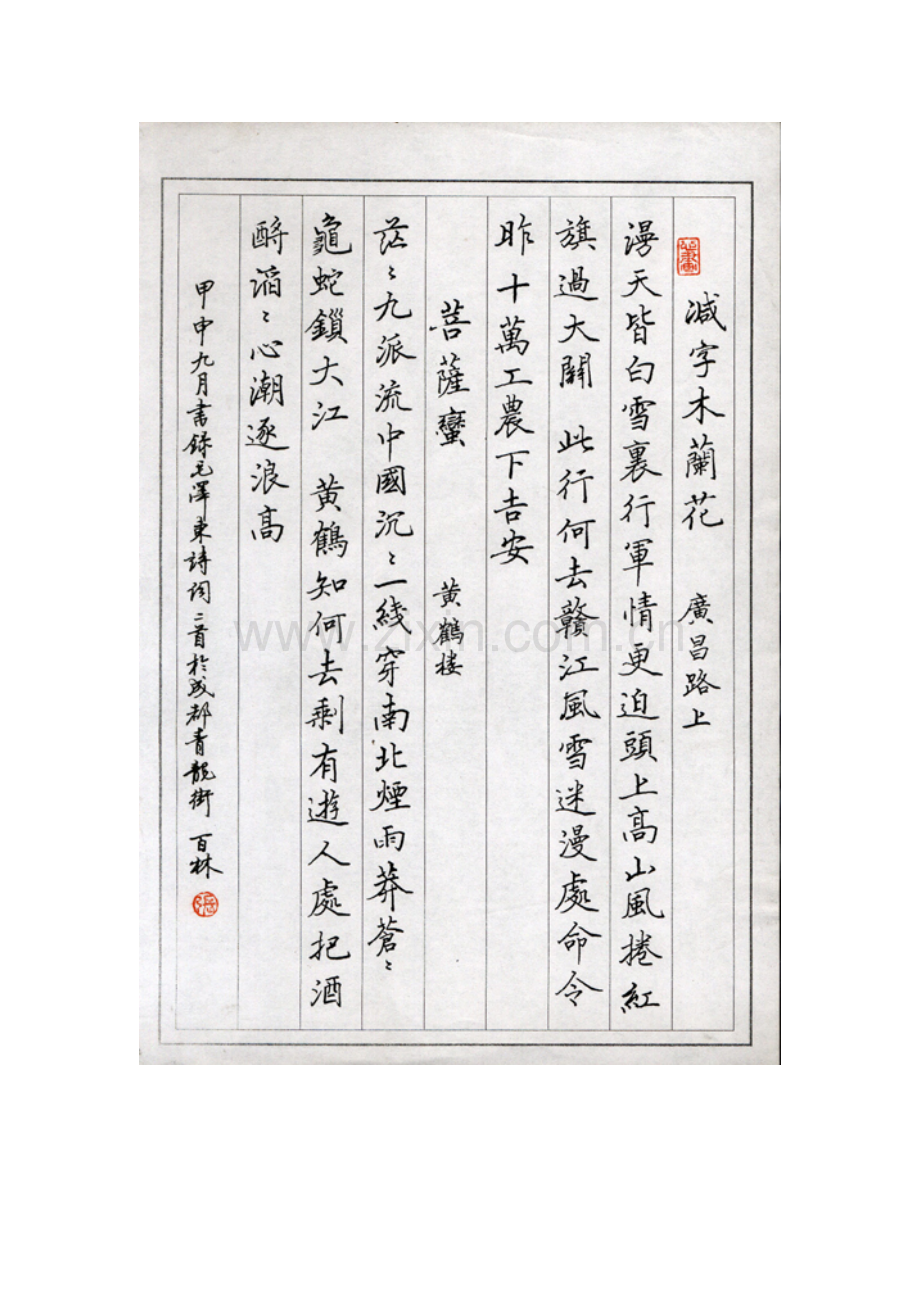 減字木蘭花 廣昌路上
漫天皆白雪裏行軍情更迫頭上高山風捲紅
旗過大關 此行何去贛江風雪迷漫處命令
昨十萬工農下吉安
菩薩蠻 黄鶴楼
茫〻九派流中國沉〻一綫穿南北煙雨莽蒼〻
龜蛇鎖大江 黄鶴知何去剩有遊人處把酒
酹滔〻心潮逐浪高
甲申九月書録毛澤東詩詞二首於成都青龍街 百林
www.zixin.com.cn